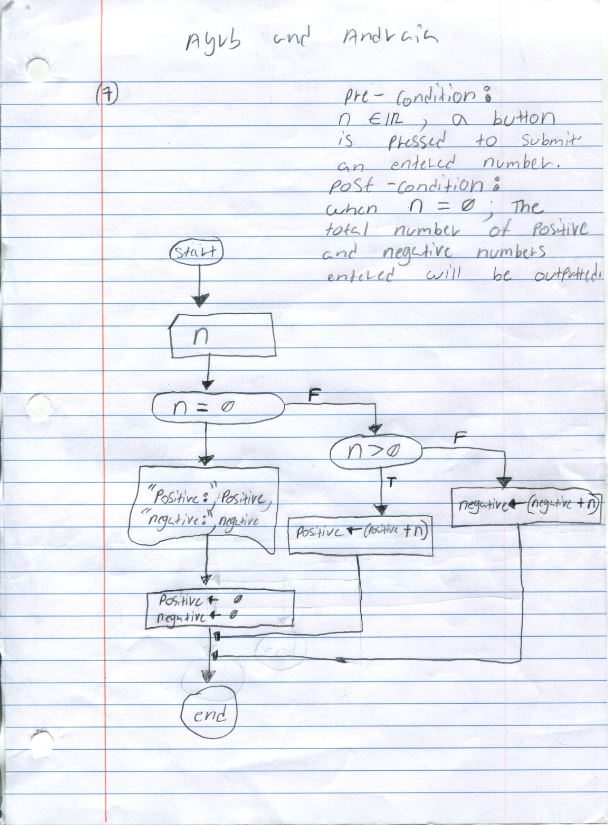 Ayub and Andraia
(7)
Pre-condition:
n ∈ ℝ, a button
is pressed to submit
an entered number.
Post-condition:
when n = 0; The
total number of Positive
and negative numbers
entered will be outputted.
start
n
n = 0
F
n>0
F
T
"Positive:", Positive,
"negative:", negative
Positive ← (Positive + n)
negative ← (negative + n)
Positive ← 0
negative ← 0
end